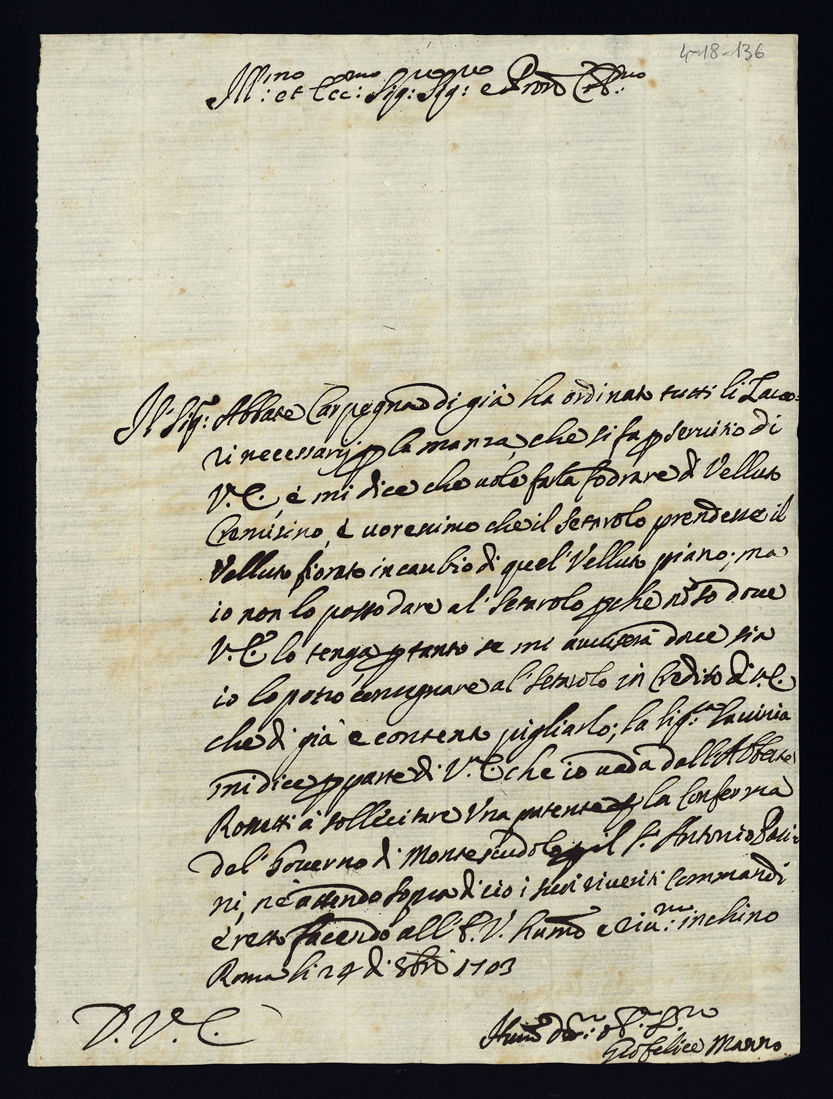 4-18-136
Ill.mo et Ecc.mo Sig.re Sig.re e Pron Col.mo
Il Sig.r Abbate Carpegna di già ha ordinato tutti li Lauo=
ri necessarij p la manza, che si fa p seruitio di
V.E., é mi dice che uole farla fodrare di Velluto
Cremisino, é uoressimo che il Setarolo prendesse il
Velluto fiorato in cambio di quel' Velluto piano; ma
io non lo posso dare al' Setarolo pche nõ so doue
V.E. lo tenga, p tanto se mi auuiserà doue sia
io lo potrò consegnare al' Setarolo in Credito di V.E.
che di già è contento pigliarlo; la Sig.ra Lauinia
mi dice p parte di V.E. che io uada dall'Abbate
Rossetti à sollecitare Una patente p la Conferma
del' Gouerno di Montescudolo p il S.r Antonio Pasi=
ni, nè attendo sopra di ciò i suoi riueriti Commandi
é resto facendo all' E.V. humo e riu.mo inchino
Roma li 24 di 8bre 1703
D. V. E.
Hum.o
Gio Felice Marro